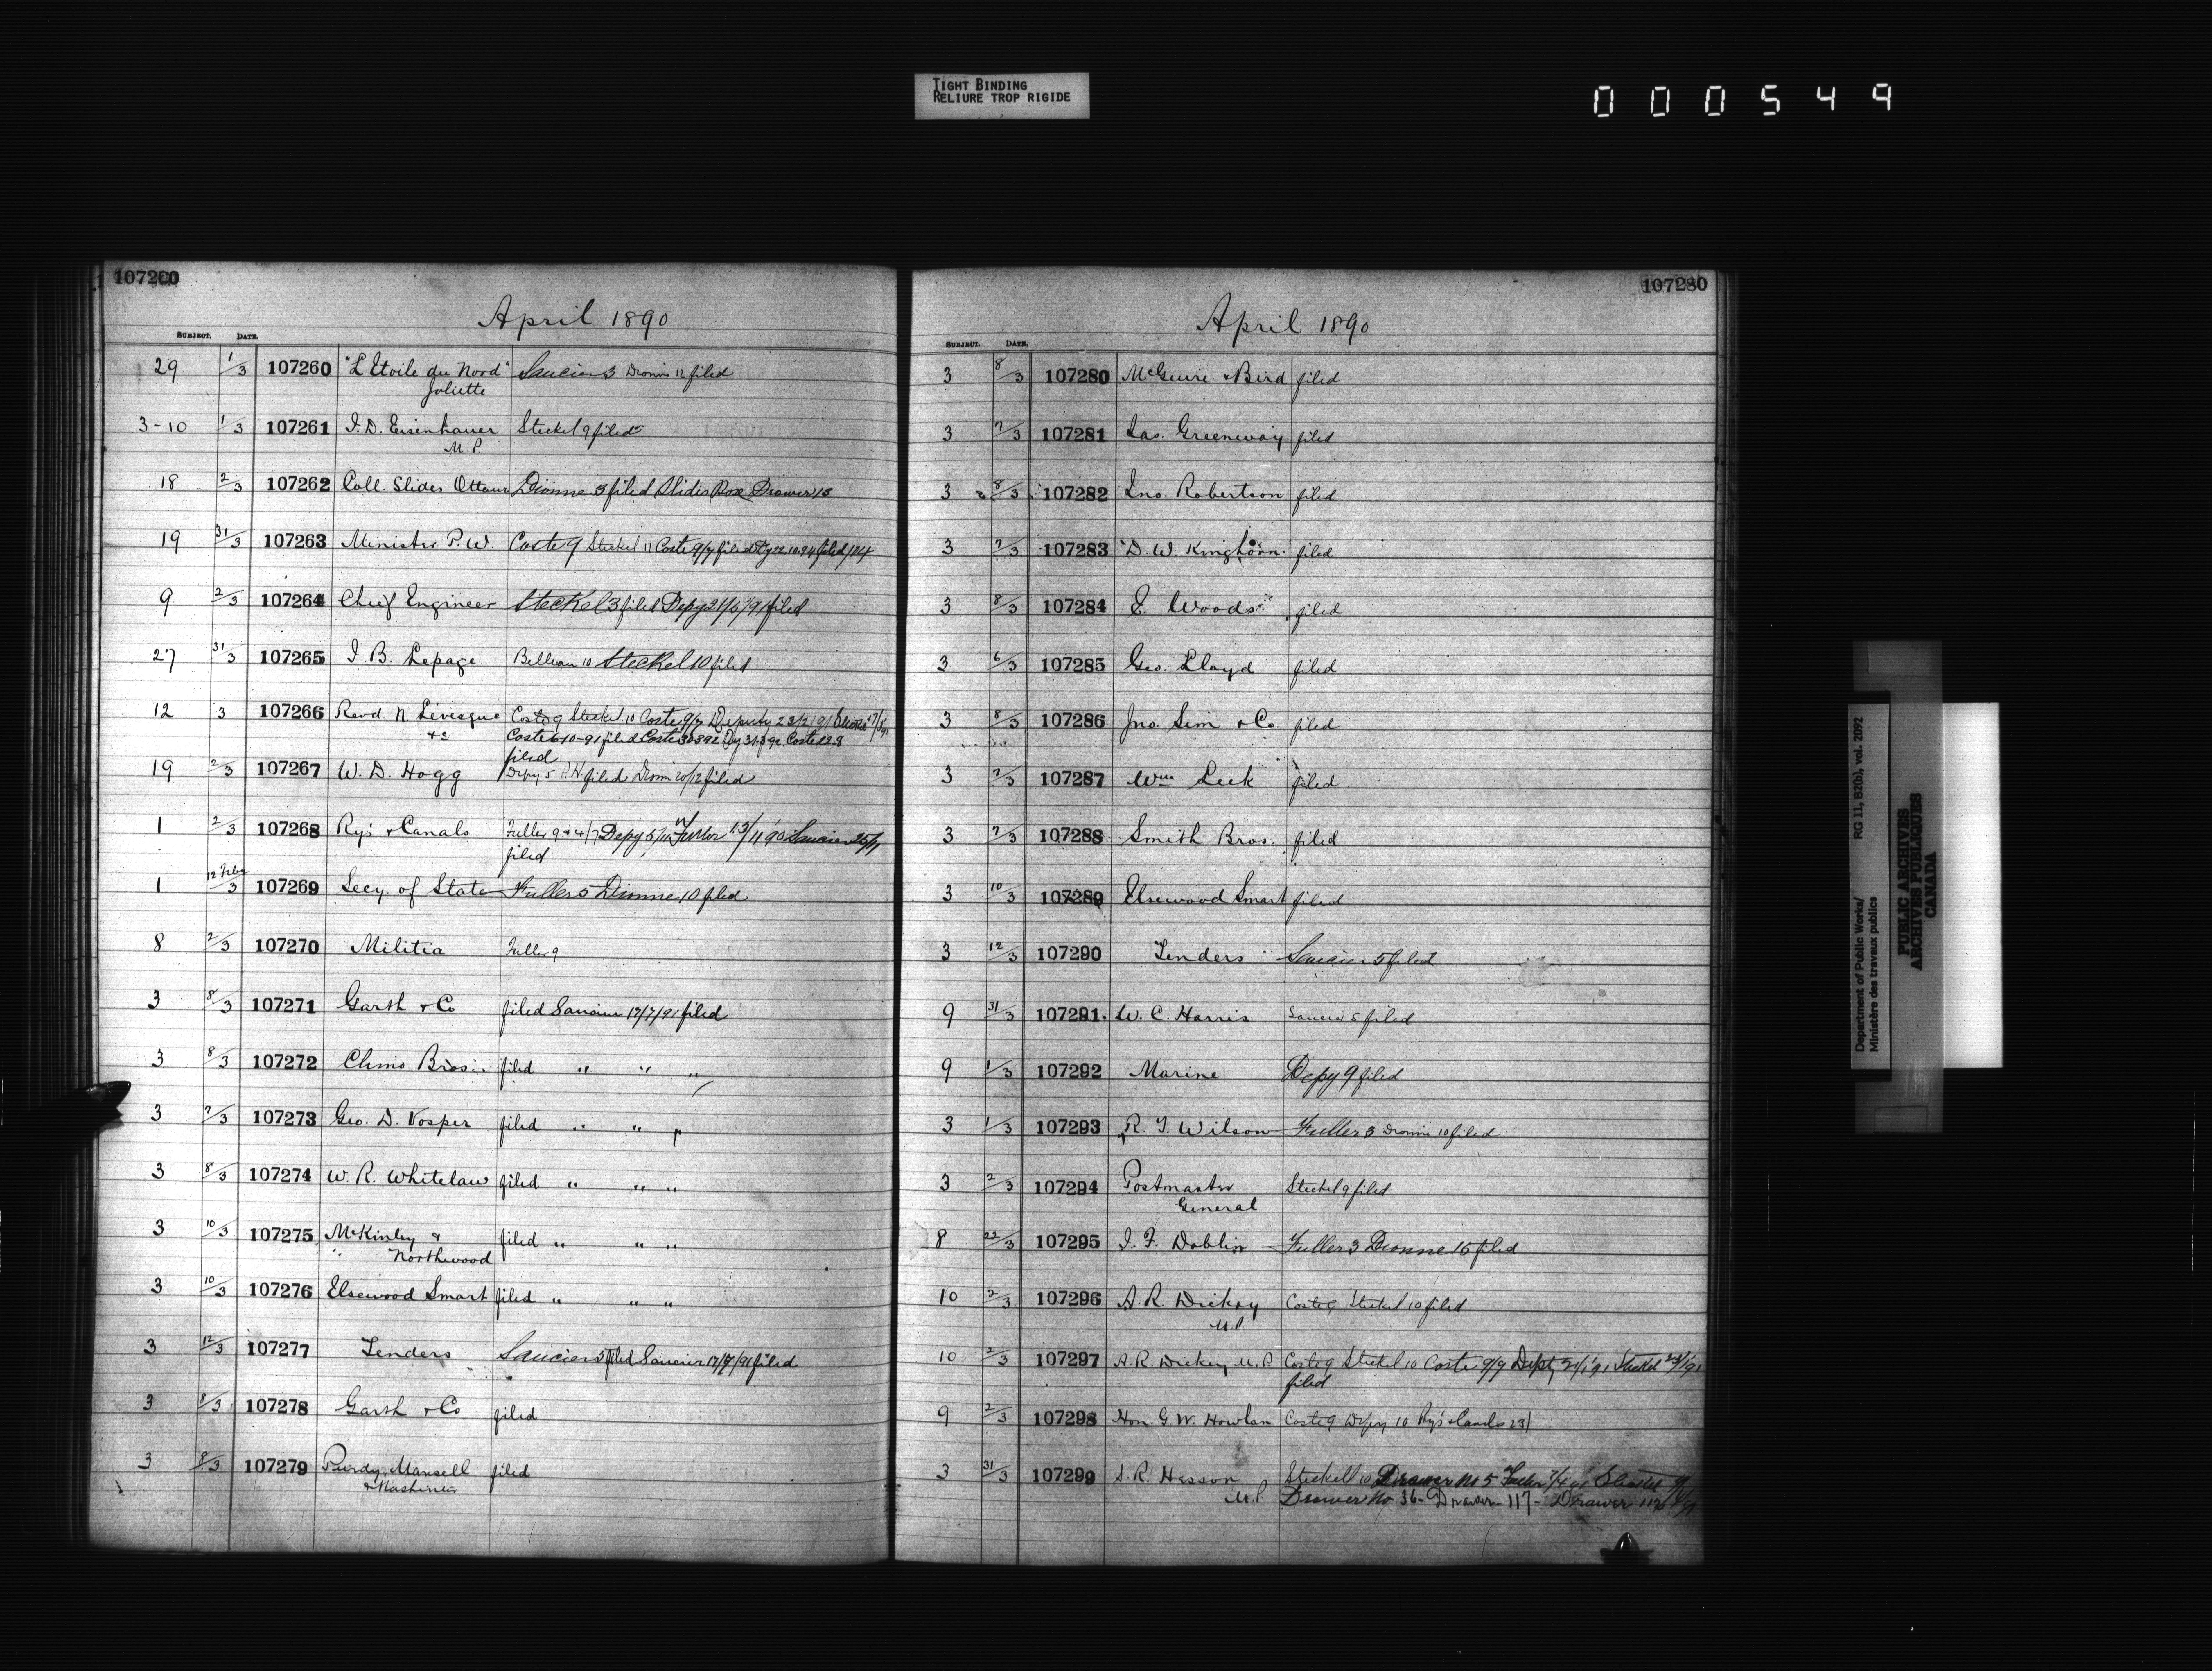 TIGHT BINDING
RELIURE TROP RIGIDE
000549
107260
April 1890
SUBJECT. DATE.
29 1/3 107260 "L'Etoile du Nord" Saucier 3 Dionne 12 filed
Joliette
3-10 1/3 107261 J.D. Eisenhauer Steckel 9 filed
M.P.
18 2/3 107262 Coll. Slides Ottawa Dionne 3 filed Slides Box Drawer 13
19 31/3 107263 Minister P.W. Coste 9 Steckel 11 Coste 9/9 filed Dy 22.10.94 filed
9 2/3 107264 Chief Engineer Steckel 3 filed Depy 21/5/91 filed
27 31/3 107265 J.B. Lepage Belleau 10 Steckel 10 filed
12 3 107266 Revd N Levesque Coste 9 Steckel 10 Coste 9/9 Deputy 23/2/91
&c Coste 6-10-91 filed Coste Dy Coste
filed
19 2/3 107267 W.D. Hogg Depy 5 P.W. filed Dionne 20/12 filed
1 2/3 107268 Rys & Canals Fuller 9 & 4/7 Depy 5/11 Fuller 13/11/90 Saucier 25/11
filed
1 12 Feby/3 107269 Secy. of State Fuller 5 Dionne 10 filed
8 2/3 107270 Militia Fuller 9
3 8/3 107271 Garth & Co filed Saucier 17/7/91 filed
3 8/3 107272 Clinio Bros. filed " " "
3 7/3 107273 Geo. D. Vosper filed " " "
3 8/3 107274 W.R. Whitelaw filed " " "
3 10/3 107275 McKinley & filed " " "
" Northwood
3 10/3 107276 Elsewood Smart filed " " "
3 12/3 107277 Tenders Saucier 5 filed Saucier 17/7/91 filed
3 8/3 107278 Garth & Co filed
3 8/3 107279 Purdy, Mansell filed
& Mashinter
107280
April 1890
SUBJECT. DATE.
3 8/3 107280 McGuire & Bird filed
3 7/3 107281 Jas. Greenway filed
3 8/3 107282 Jno. Robertson filed
3 7/3 107283 D.W. Kinghorn filed
3 8/3 107284 E. Woods filed
3 6/3 107285 Geo. Lloyd filed
3 8/3 107286 Jno. Sim & Co filed
3 7/3 107287 Wm Leek filed
3 7/3 107288 Smith Bros. filed
3 10/3 107289 Elsewood Smart filed
3 12/3 107290 Tenders Saucier 5 filed
9 31/3 107291 W.C. Harris Saucier 5 filed
9 1/3 107292 Marine Depy 9 filed
3 1/3 107293 R.T. Wilson Fuller 3 Dionne 10 filed
3 2/3 107294 Postmaster Steckel 9 filed
General
8 22/3 107295 J.F. Doblin Fuller 3 Dionne 15 filed
10 2/3 107296 A.R. Dickey Coste 9 Steckel 10 filed
M.P.
10 2/3 107297 A.R. Dickey M.P. Coste 9 Steckel 10 Coste 9/9 Depy 21/1/91 Steckel 23/1/91
filed
9 2/3 107298 Hon. G.W. Howlan Coste 9 Depy 10 Rys & Canals 23/
3 31/3 107299 S.R. Hesson Steckell 10 Drawer No 5 Fuller Steckel
M.P. Drawer No 36 - Drawer 117 - Drawer 112
Department of Public Works/ RG 11, B2(b), vol. 2092
Ministère des travaux publics
PUBLIC ARCHIVES
ARCHIVES PUBLIQUES
CANADA